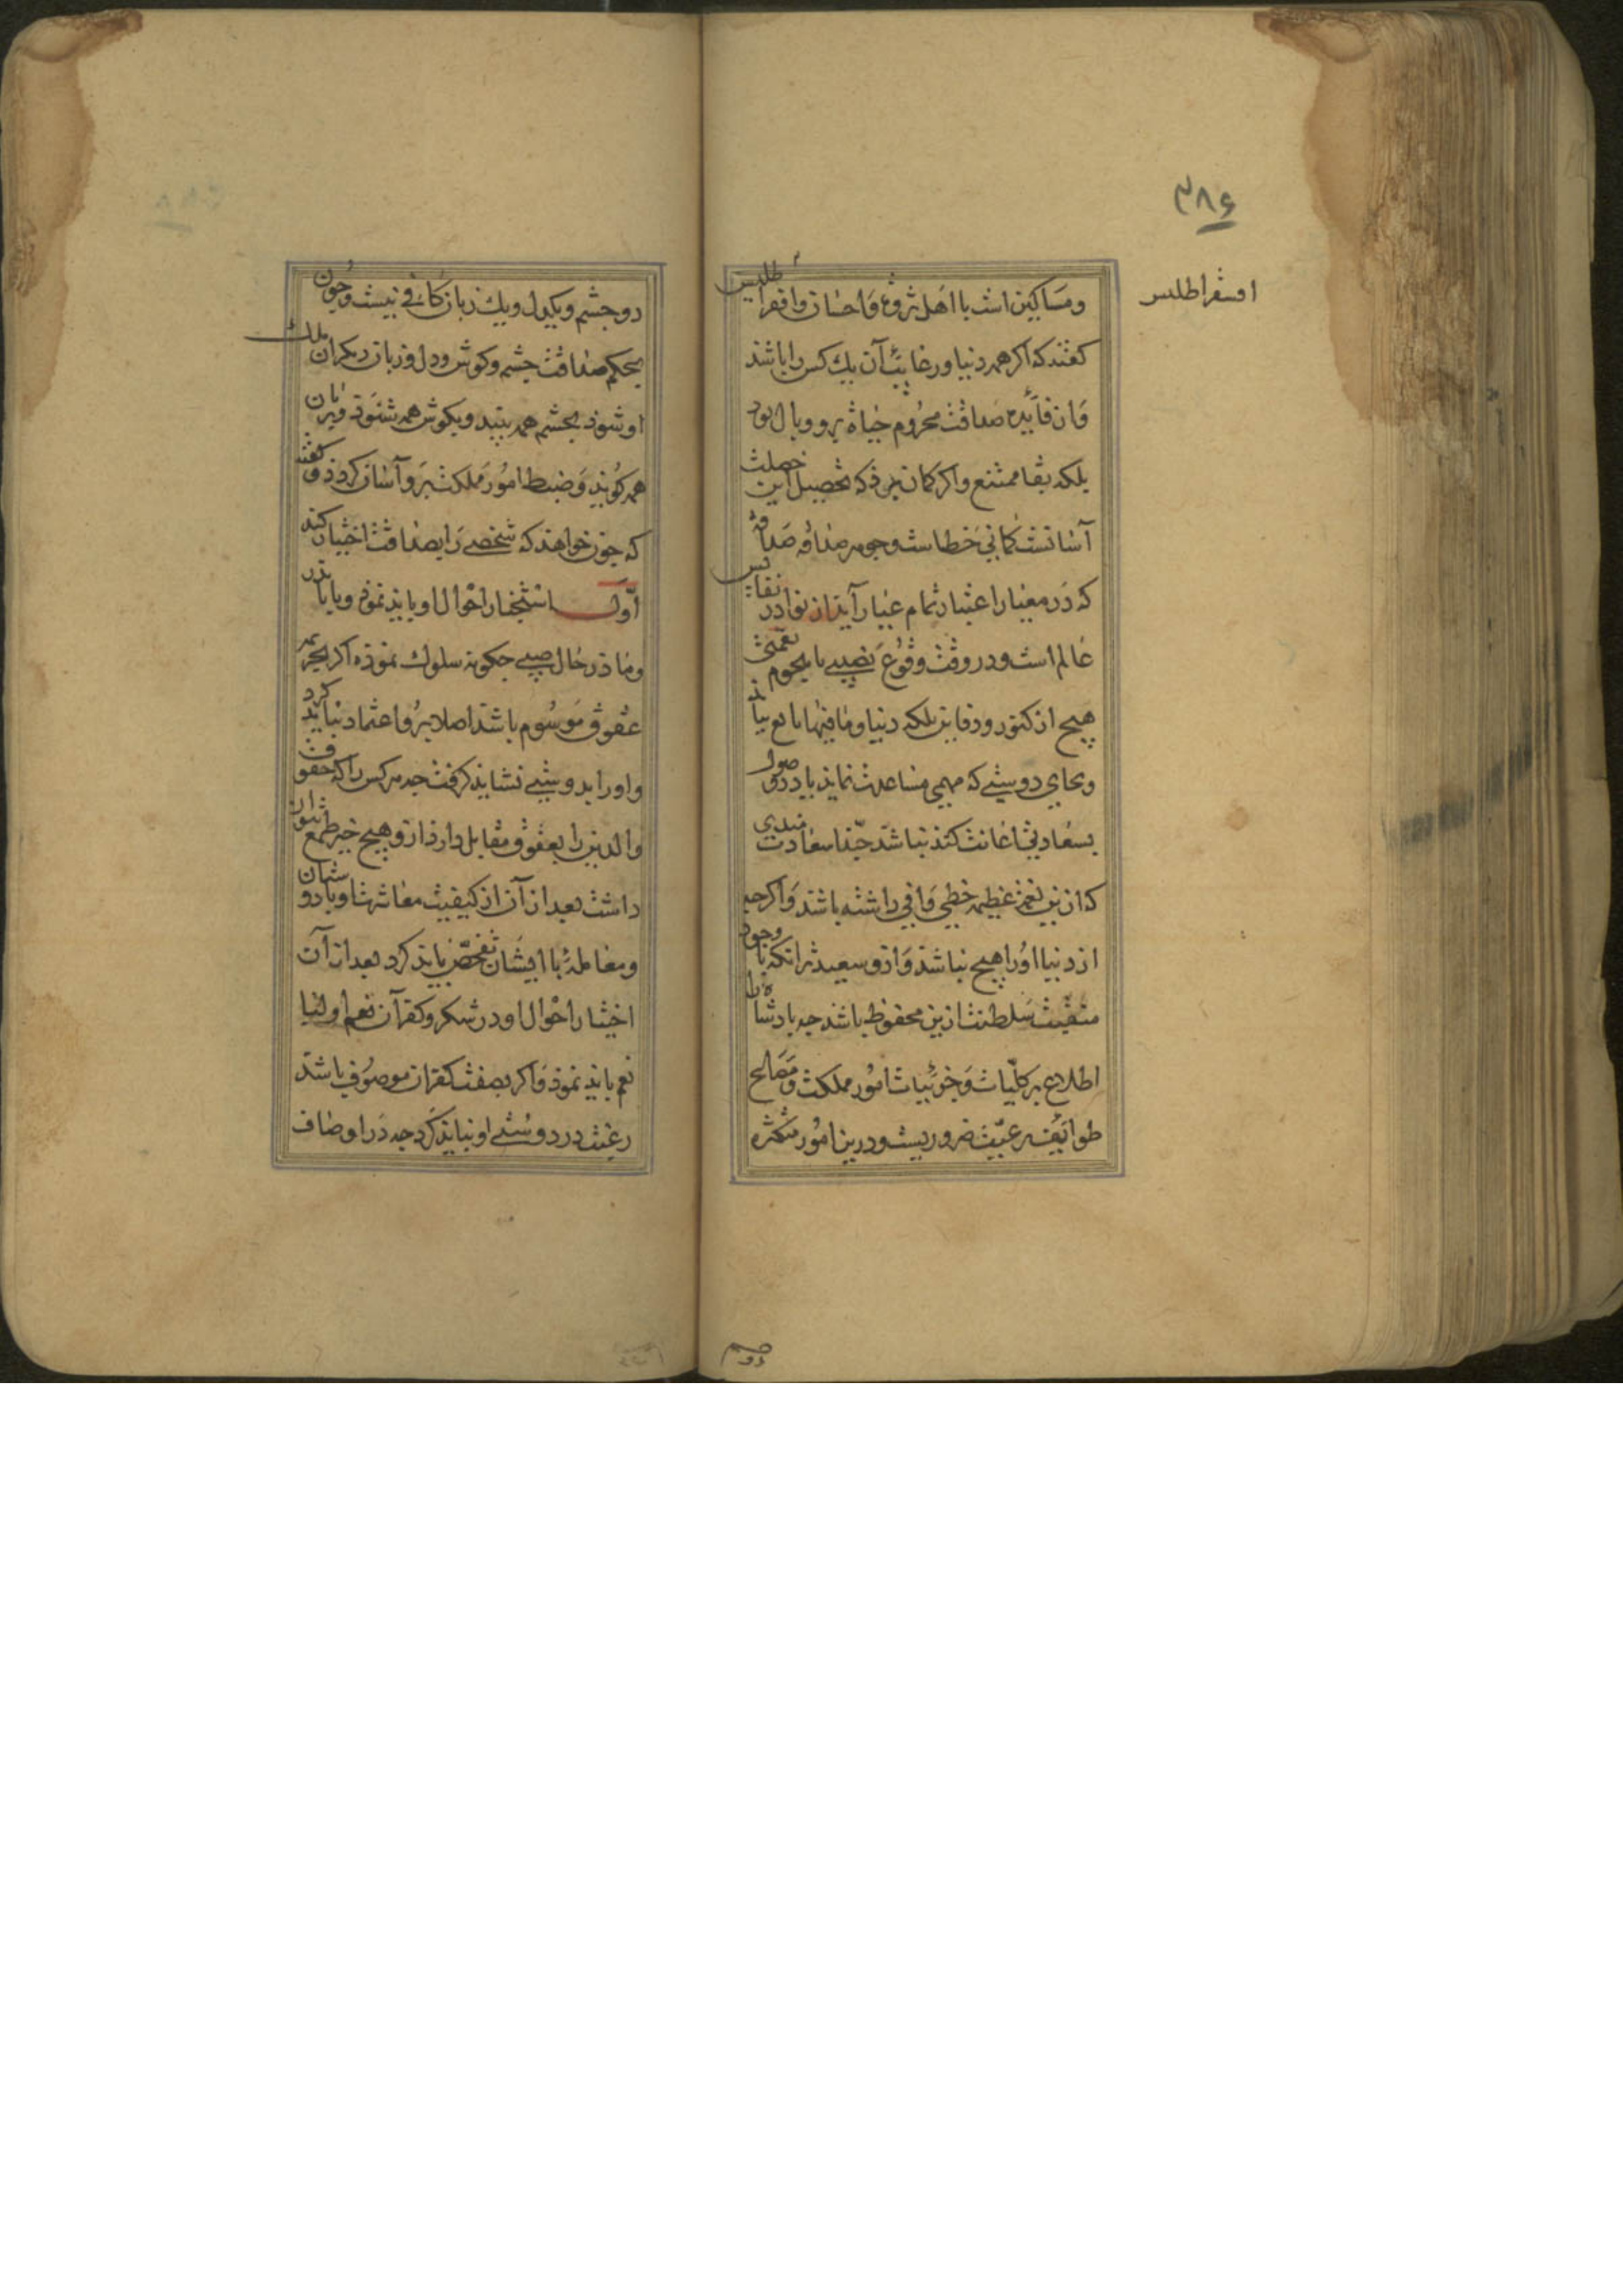 ۳۸۶
اسقراطلیس
ومساکین است با اهل ثروة و احسان واقراطلیس
کفتند که اکر همه دنیا ورغایب آن یك کس را باشد
و از فایده صداقت محروم حیاة برو وبال بود
بلکه بقا ممتنع واکر کمان برذ که تحصیل این خصلت
آسانست کمانی خطاست وجوهر صداقه
که در معیار اعتبار تمام عیار آید از نوادر نقایس
عالم است ودر وقت وقوع نصیبی یا هجوم نقمتی
هیچ از کنوز و دفاین بلکه دنیا وما فیها نافع نیاید
وبجای دوستی که مهمی مساعدت نماید یا در حصول
سعادتی اعانت کند نباشد حبذا سعادت مندی
که ازین نعمة عظیمه حظی وافی داشته باشد واکرچه
از دنیا اورا هیچ نباشد وازو سعید تر انکه با وجود
منقبت سلطنت ازین محظوظ باشد چه بادشاه را
اطلاع بر کلیات وجزئیات امور مملکت ومصالح
طوایف رعیت ضروریست ودرین امور متکثره
دو چشم ویکدل ویك زبان کافی نیست وچون
بحکم صداقت چشم وکوش ودل وزبان دیکران ملك
او شوذ بچشم همه بیند وبکوش همه شنوذ وبزبان
همه کوید وضبط امور مملکت برو آسان کردذ وکفته
که چون خواهند که شخصی را بصداقت اختیار کنند
اول استخبار احوال او باید نموذ وبا پذر
وماذر در حال صبی چکونه سلوك نموذه اکر بجریمه
عقوق موسوم باشد اصلا برو اعتماد نباید کرد
واورا بدوستی نشاید کرفت چه هر کس را که حقوق
والدین را بعقوق مقابل دارذ ازو هیچ خیر طمع نتوان
داشت بعد از آن از کیفیت معاشرت او با دوستان
ومعامله با ایشان تفحص باید کرد بعد از آن
اختبار احوال او در شکر وکفران نعم اولیا
نعم باید نموذ واکر بصفت کفران موصوف باشد
رغبت در دوستی او نباید کرد چه در اوصاف